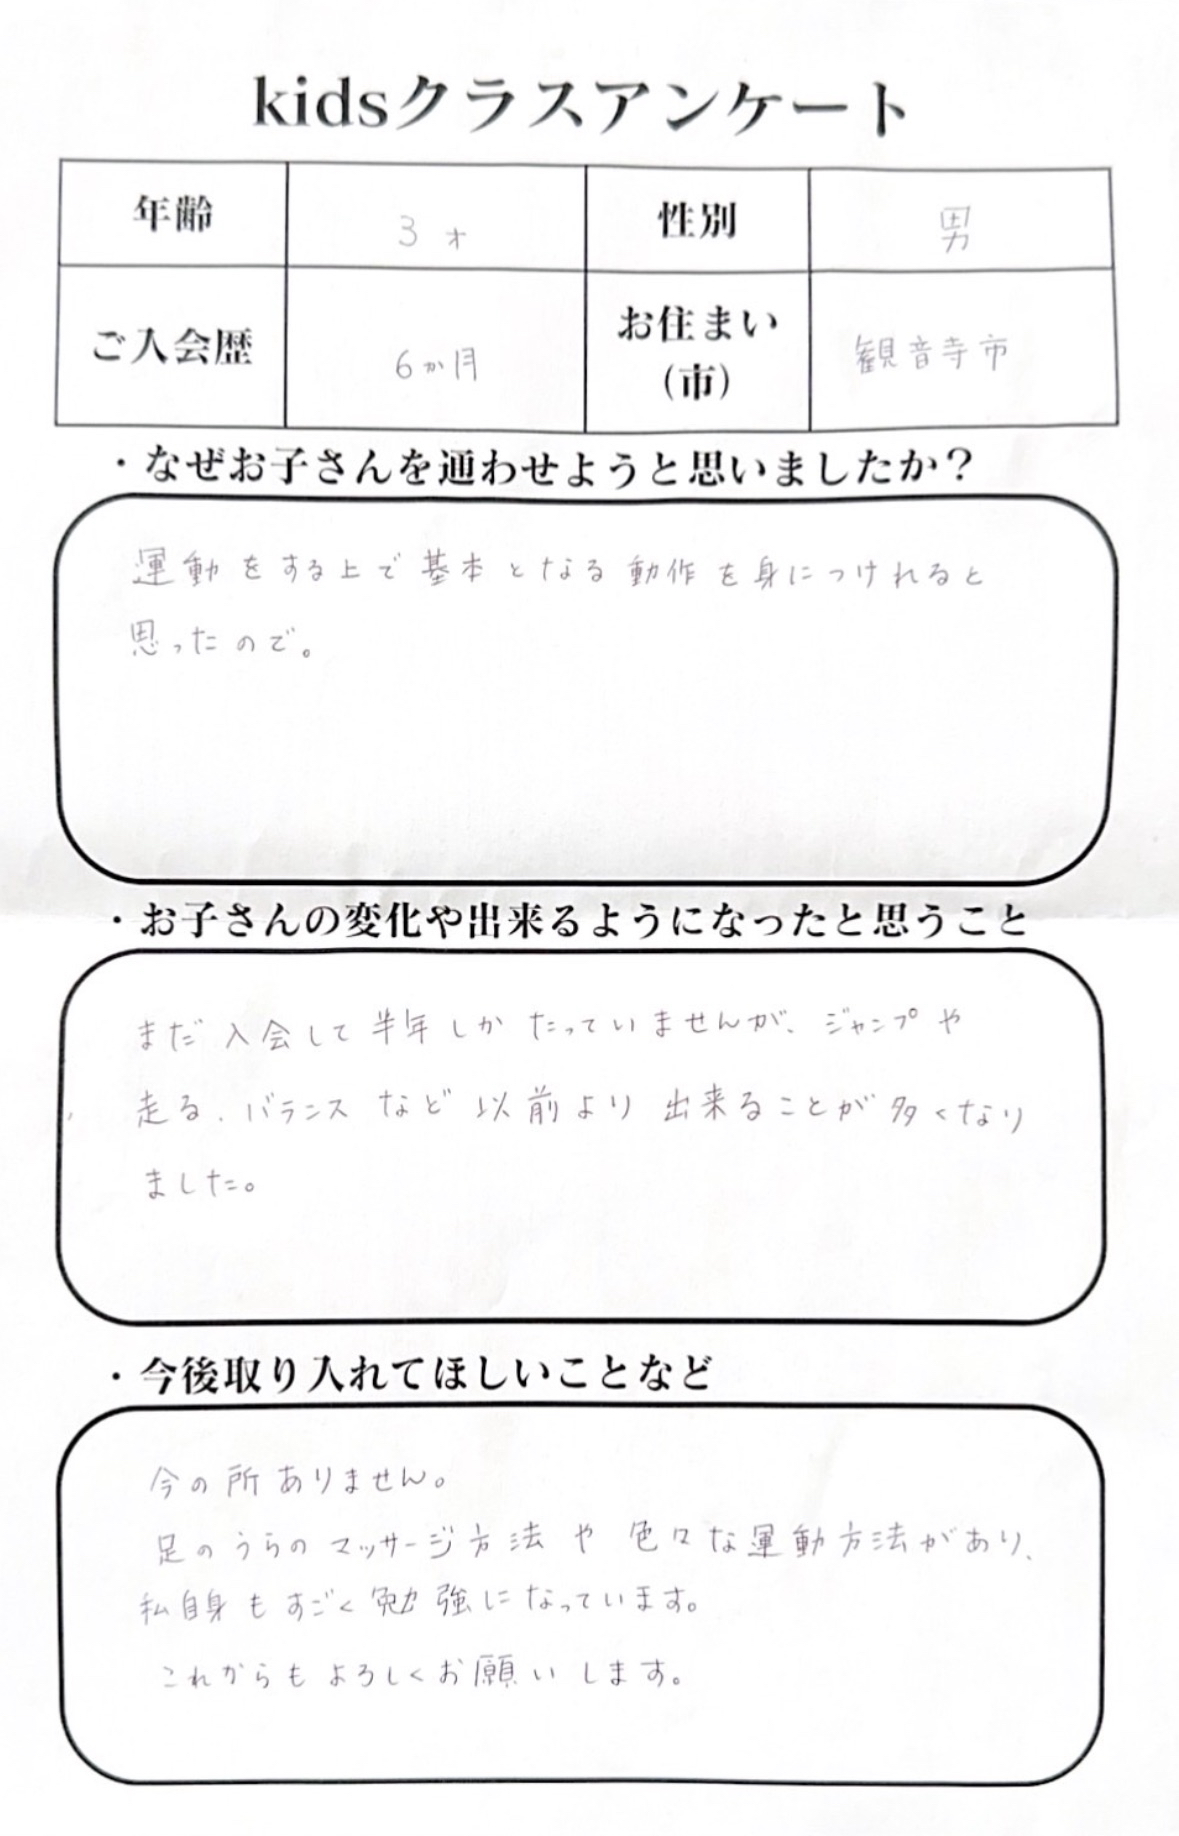 kidsクラスアンケート
年齢 3才 性別 男
ご入会歴 6か月 お住まい(市) 観音寺市
・なぜお子さんを通わせようと思いましたか？
運動をする上で基本となる動作を身につけれると
思ったので。
・お子さんの変化や出来るようになったと思うこと
まだ入会して半年しかたっていませんが、ジャンプや
走る、バランスなど以前より出来ることが多くなり
ました。
・今後取り入れてほしいことなど
今の所ありません。
足のうらのマッサージ方法や色々な運動方法があり、
私自身もすごく勉強になっています。
これからもよろしくお願いします。